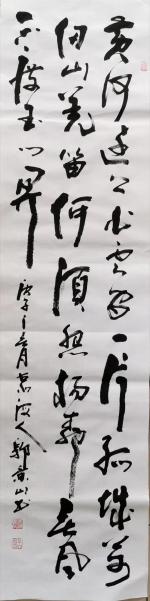 黄河远上白云间一片孤城万
仞山羌笛何须怨杨柳春风
不度玉门关
庚子